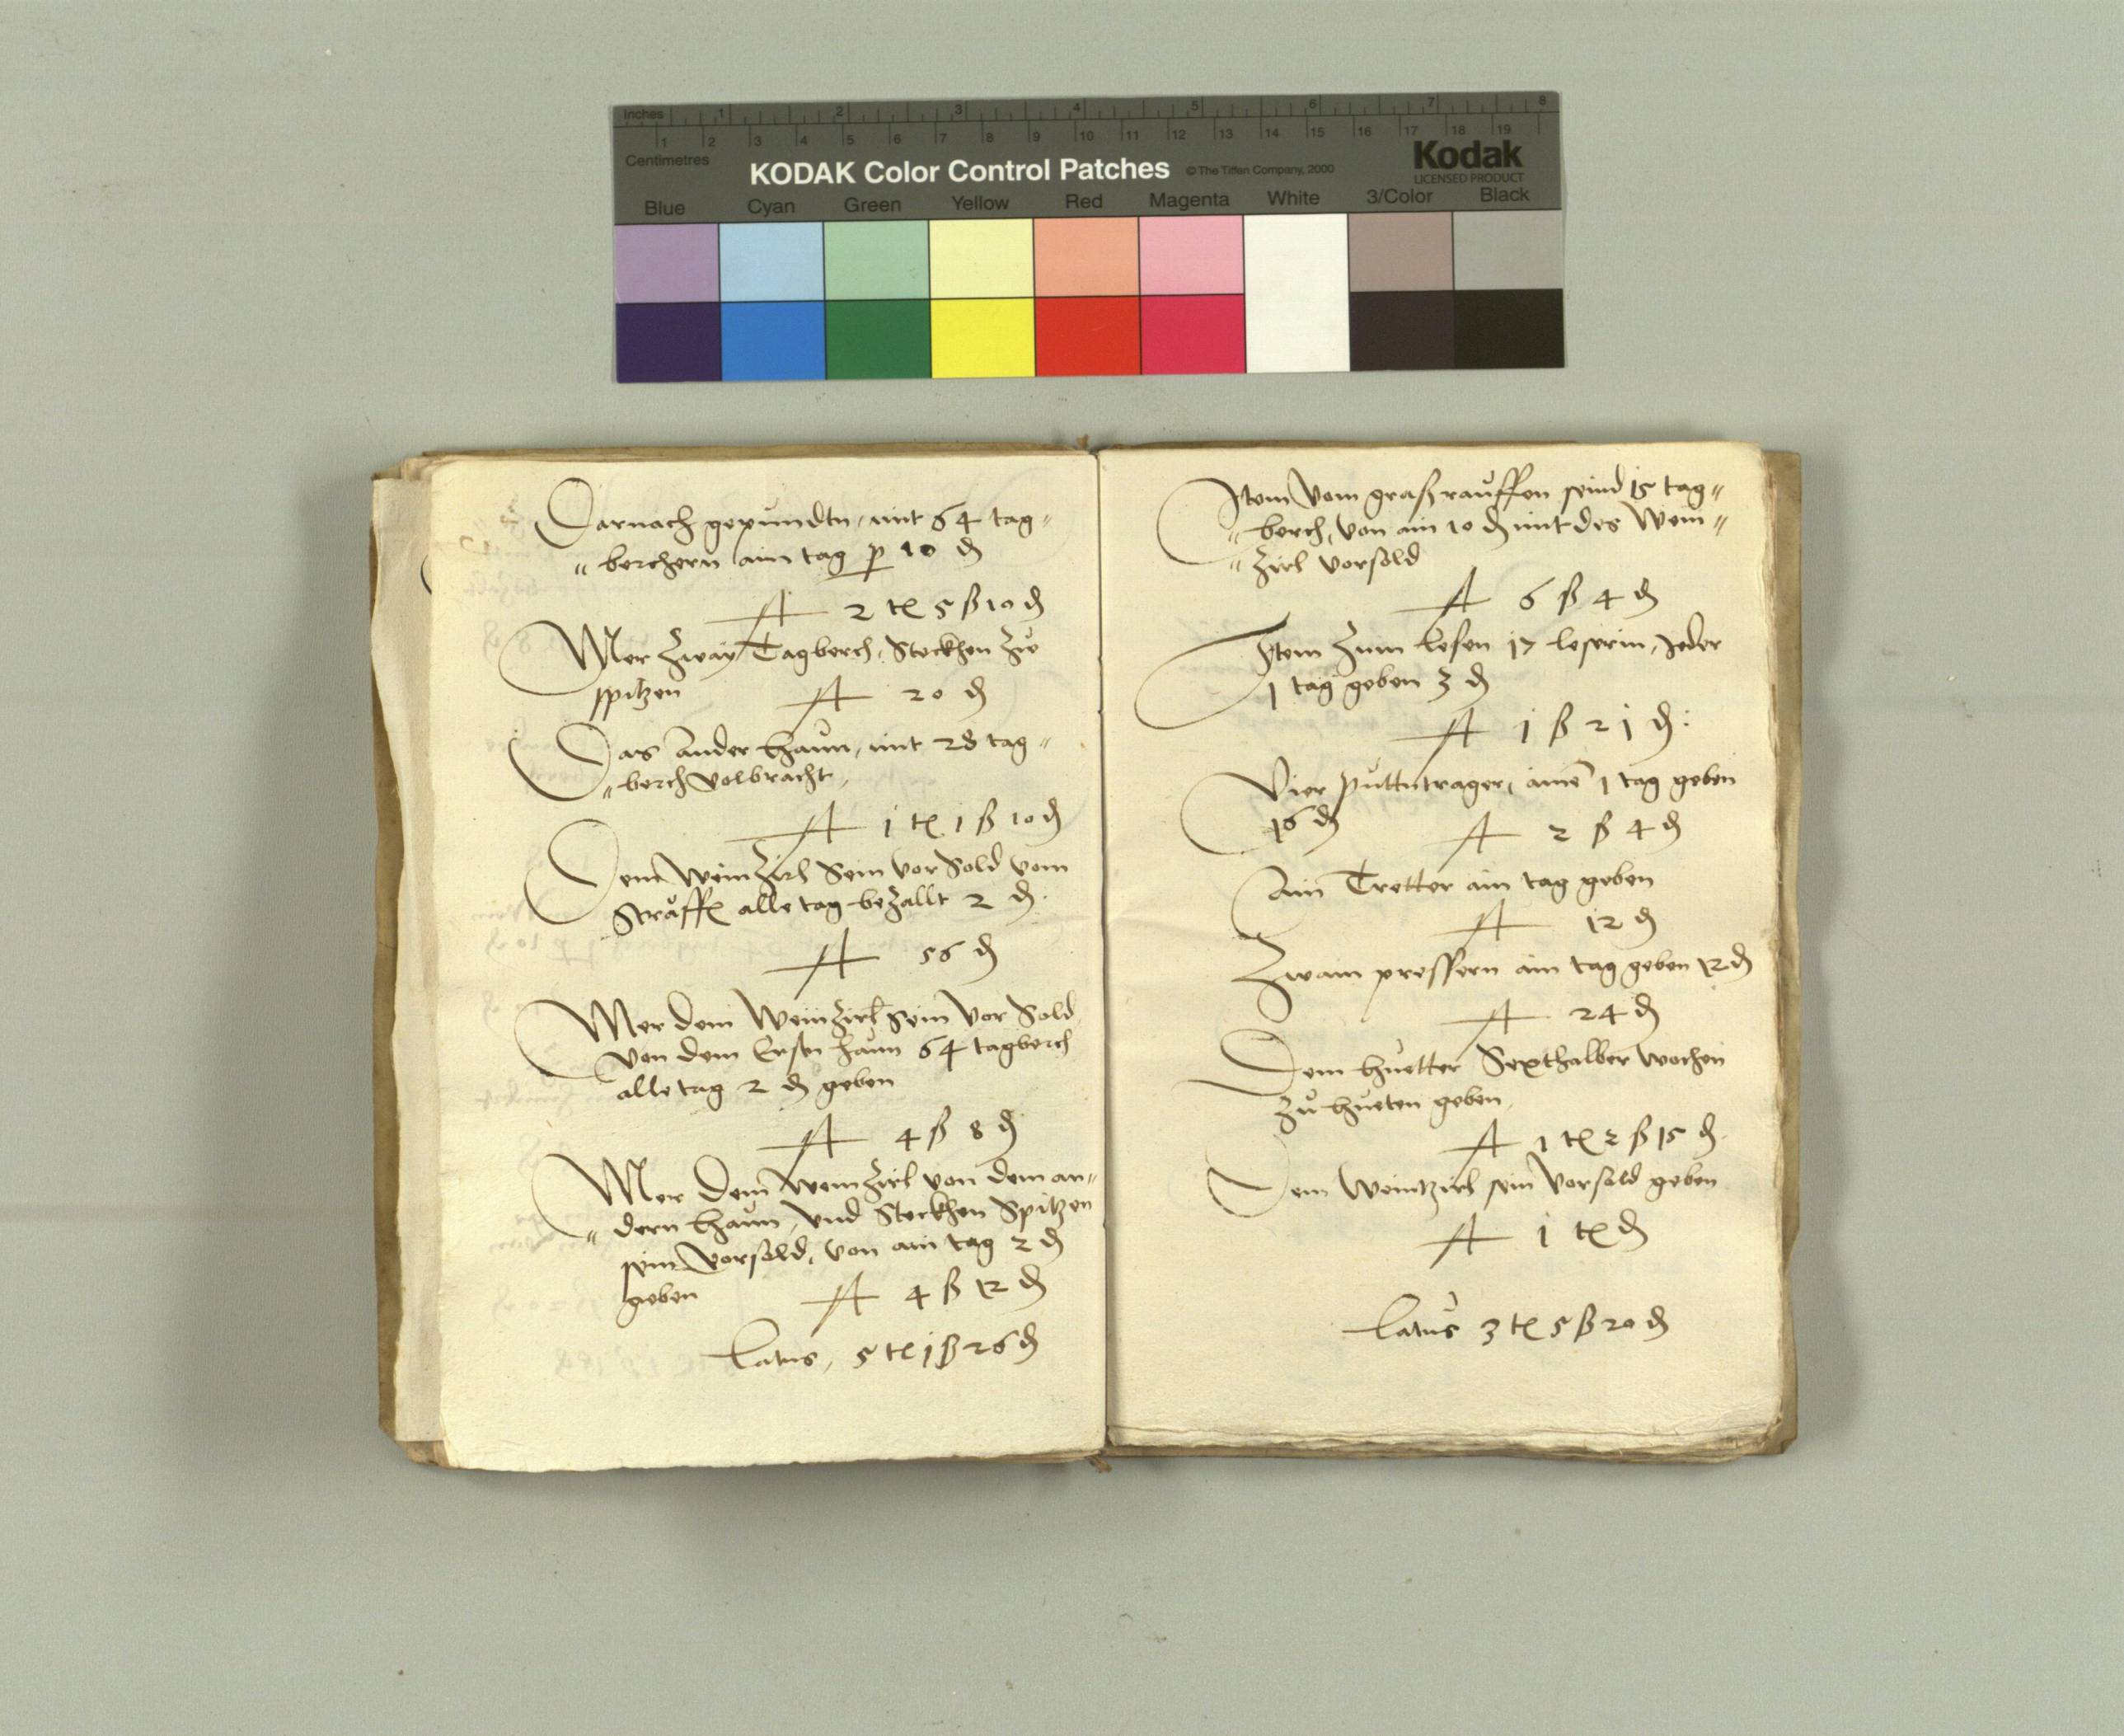 Inches 1 2 3 4 5 6 7 8
1 2 3 4 5 6 7 8 9 10 11 12 13 14 15 16 17 18 19
Centimetres
KODAK Color Control Patches © The Tiffen Company, 2000 Kodak
LICENSED PRODUCT
Blue Cyan Green Yellow Red Magenta White 3/Color Black
Darnach gepundtn, mit 64 tag„
„berchern ain tag p 10 ₰
A 2 tℓ 5 ß 10 ₰
Mer Zway Tagberch, Steckhen zu
spitzen A 20 ₰
Das ander haun, mit 28 tag„
„berch volbracht,
A 1 tℓ 1 ß 10 ₰
Dem Weinzirl Sein vor Sold vom
alle tag bezallt 2 ₰.
A 56 ₰
Mer dem Weinzirl sein vor Sold
von dem Erstn haun 64 tagberch
alle tag 2 ₰ geben
A 4 ß 8 ₰
Mer Dem Weinzirl von dem an„
„dern haun, und Steckhen Spitzen
sein vorsold, von ain tag 2 ₰
geben A 4 ß 12 ₰
Latus, 5 tℓ 1 ß 26 ₰
Item Vom graß rauffen seind 15 tag„
„berch, von ain 10 ₰ mit des Wein„
„zirl vorsold
A 6 ß 4 ₰
Item Zum lesen 17 leserin, Jeder
1 tag geben 3 ₰
A 1 ß 21 ₰:
Vier puttntrager, ainē 1 tag geben
16 ₰ A 2 ß 4 ₰
Ain Tretter ain tag geben
A 12 ₰
Zwain pressern ain tag geben 12 ₰
A 24 ₰
Dem huetter Sexthalber wochen
zu hueten geben,
A 1 tℓ 2 ß 15 ₰.
Dem Weintzirl sein Vorsold geben
A 1 tℓ ₰
Latus 3 tℓ 5 ß 20 ₰